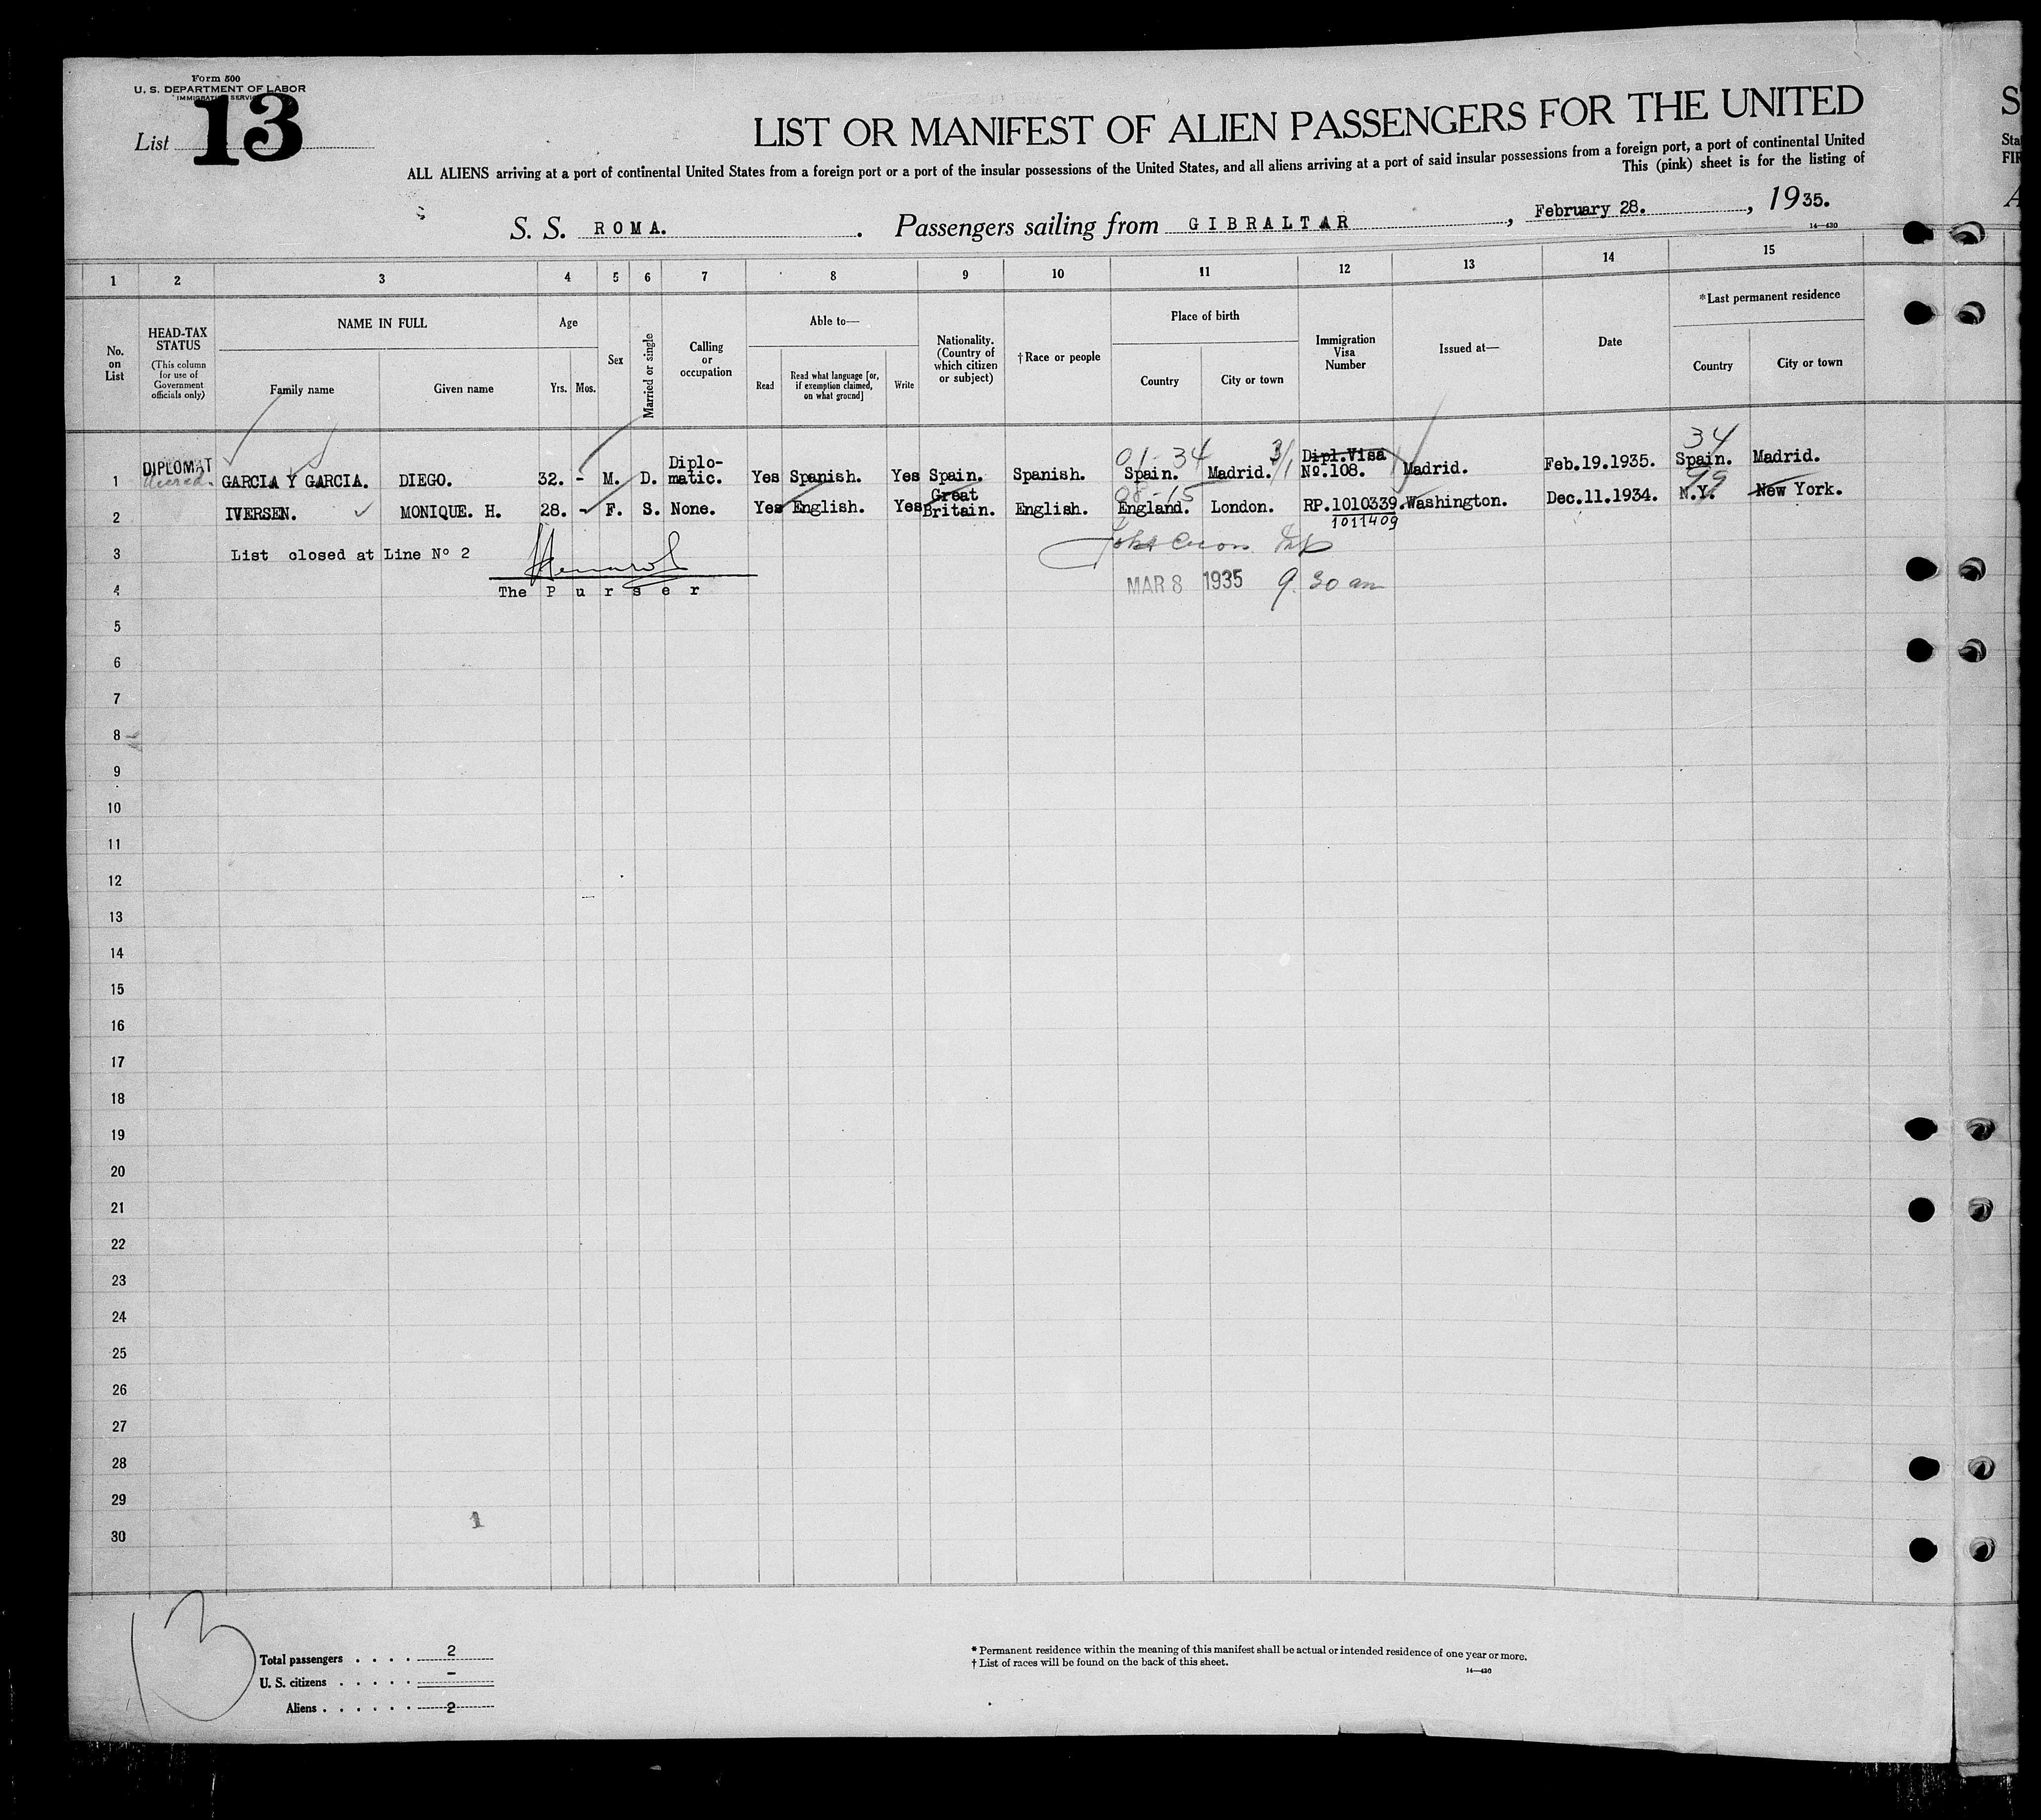 Form 500
U. S. DEPARTMENT OF LABOR
IMMIGRATION SERVICE
List 13
LIST OR MANIFEST OF ALIEN PASSENGERS FOR THE UNITED
ALL ALIENS arriving at a port of continental United States from a foreign port or a port of the insular possessions of the United States, and all aliens arriving at a port of said insular possessions from a foreign port, a port of continental United
This (pink) sheet is for the listing of
S. S. ROMA. Passengers sailing from GIBRALTAR, February 28., 1935.
14—430
1 2 3 4 5 6 7 8 9 10 11 12 13 14 15
No. on List
HEAD-TAX STATUS
(This column for use of Government officials only)
NAME IN FULL
Family name
Given name
Age
Yrs.
Mos.
Sex
Married or single
Calling or occupation
Able to—
Read
Read what language [or, if exemption claimed, on what ground]
Write
Nationality. (Country of which citizen or subject)
†Race or people
Place of birth
Country
City or town
Immigration Visa Number
Issued at—
Date
*Last permanent residence
Country
City or town
01-34 3/1 34
1 DIPLOMAT GARCIA Y GARCIA. DIEGO. 32. - M. D. Diplo-matic. Yes Spanish. Yes Spain. Spanish. Spain. Madrid. Dipl.Visa Nº.108. Madrid. Feb.19.1935. Spain. Madrid.
08-15 99
2 IVERSEN. MONIQUE. H. 28. - F. S. None. Yes English. Yes Great Britain. English. England. London. RP.1010339. Washington. Dec.11.1934. N.Y. New York.
1011409
3 List closed at Line Nº 2
4 The Purser
MAR 8 1935 9.30 am
5
6
7
8
9
10
11
12
13
14
15
16
17
18
19
20
21
22
23
24
25
26
27
28
29
30
1
13
Total passengers . . . . 2
U. S. citizens . . . . . -
Aliens . . . . . . 2
* Permanent residence within the meaning of this manifest shall be actual or intended residence of one year or more.
† List of races will be found on the back of this sheet.
14—430